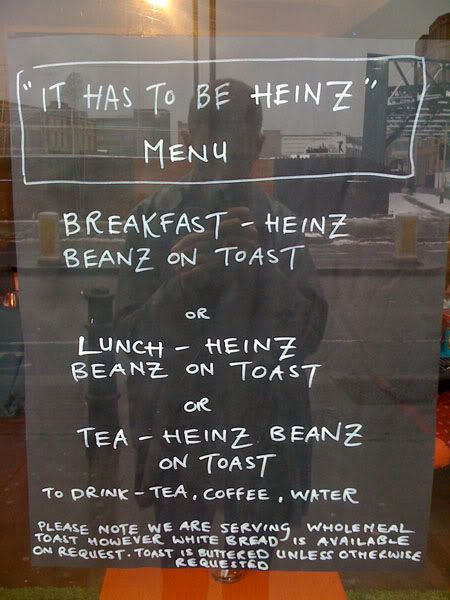 "IT HAS TO BE HEINZ"
MENU
BREAKFAST - HEINZ
BEANZ ON TOAST
OR
LUNCH - HEINZ
BEANZ ON TOAST
OR
TEA - HEINZ BEANZ
ON TOAST
TO DRINK - TEA, COFFEE, WATER
PLEASE NOTE WE ARE SERVING WHOLEMEAL
TOAST HOWEVER WHITE BREAD IS AVAILABLE
ON REQUEST. TOAST IS BUTTERED UNLESS OTHERWISE
REQUESTED